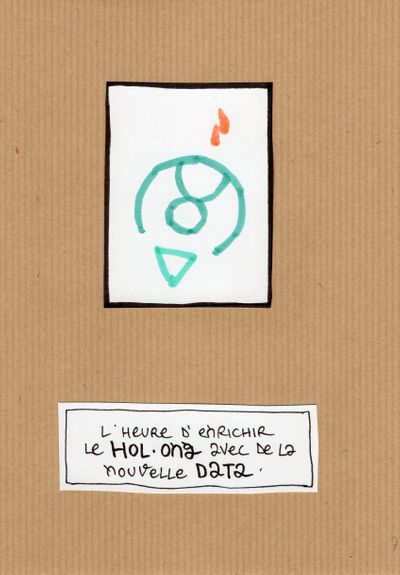 L'HEURE D'ENRICHIR
LE HOL.ONG AVEC DE LA
NOUVELLE DATA.